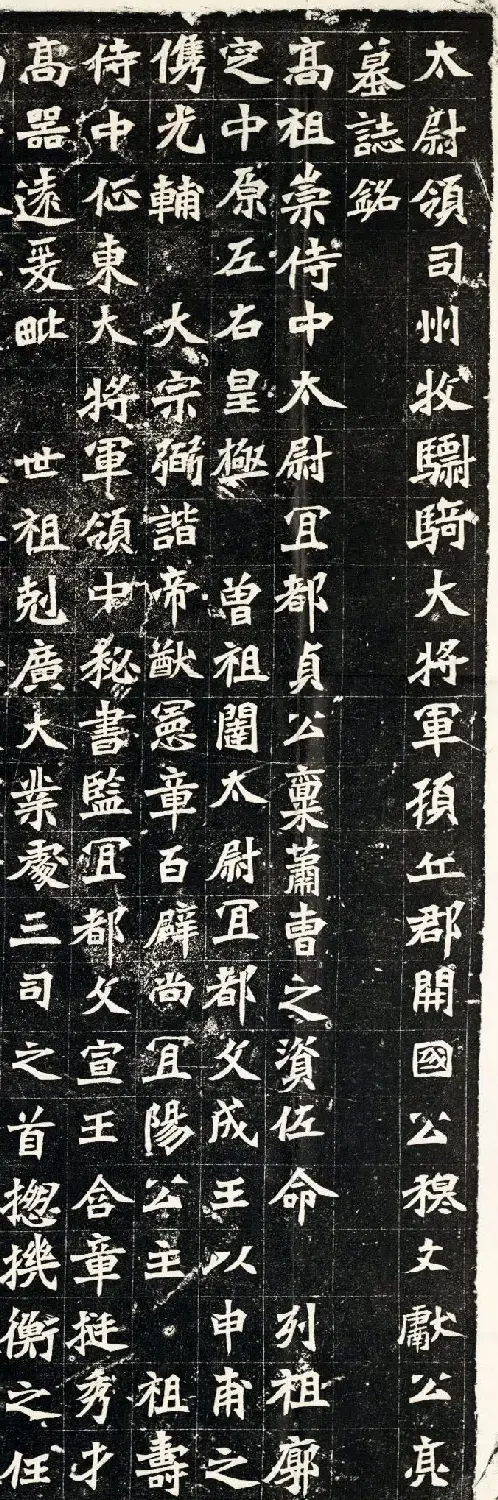 太尉領司州牧驃騎大將軍頓丘郡開國公穆文獻公亮
墓誌銘
高祖崇侍中太尉宜都貞公稟蕭曹之資佐命 列祖廓
定中原左右皇極 曾祖闥太尉宜都文成王以申甫之
儁光輔 大宗弼諧帝猷憲章百辟尚宜陽公主 祖壽
侍中征東大將軍領中秘書監宜都文宣王含章挺秀才
高器遠爰毗 世祖剋廣大業處三司之首揔機衡之任